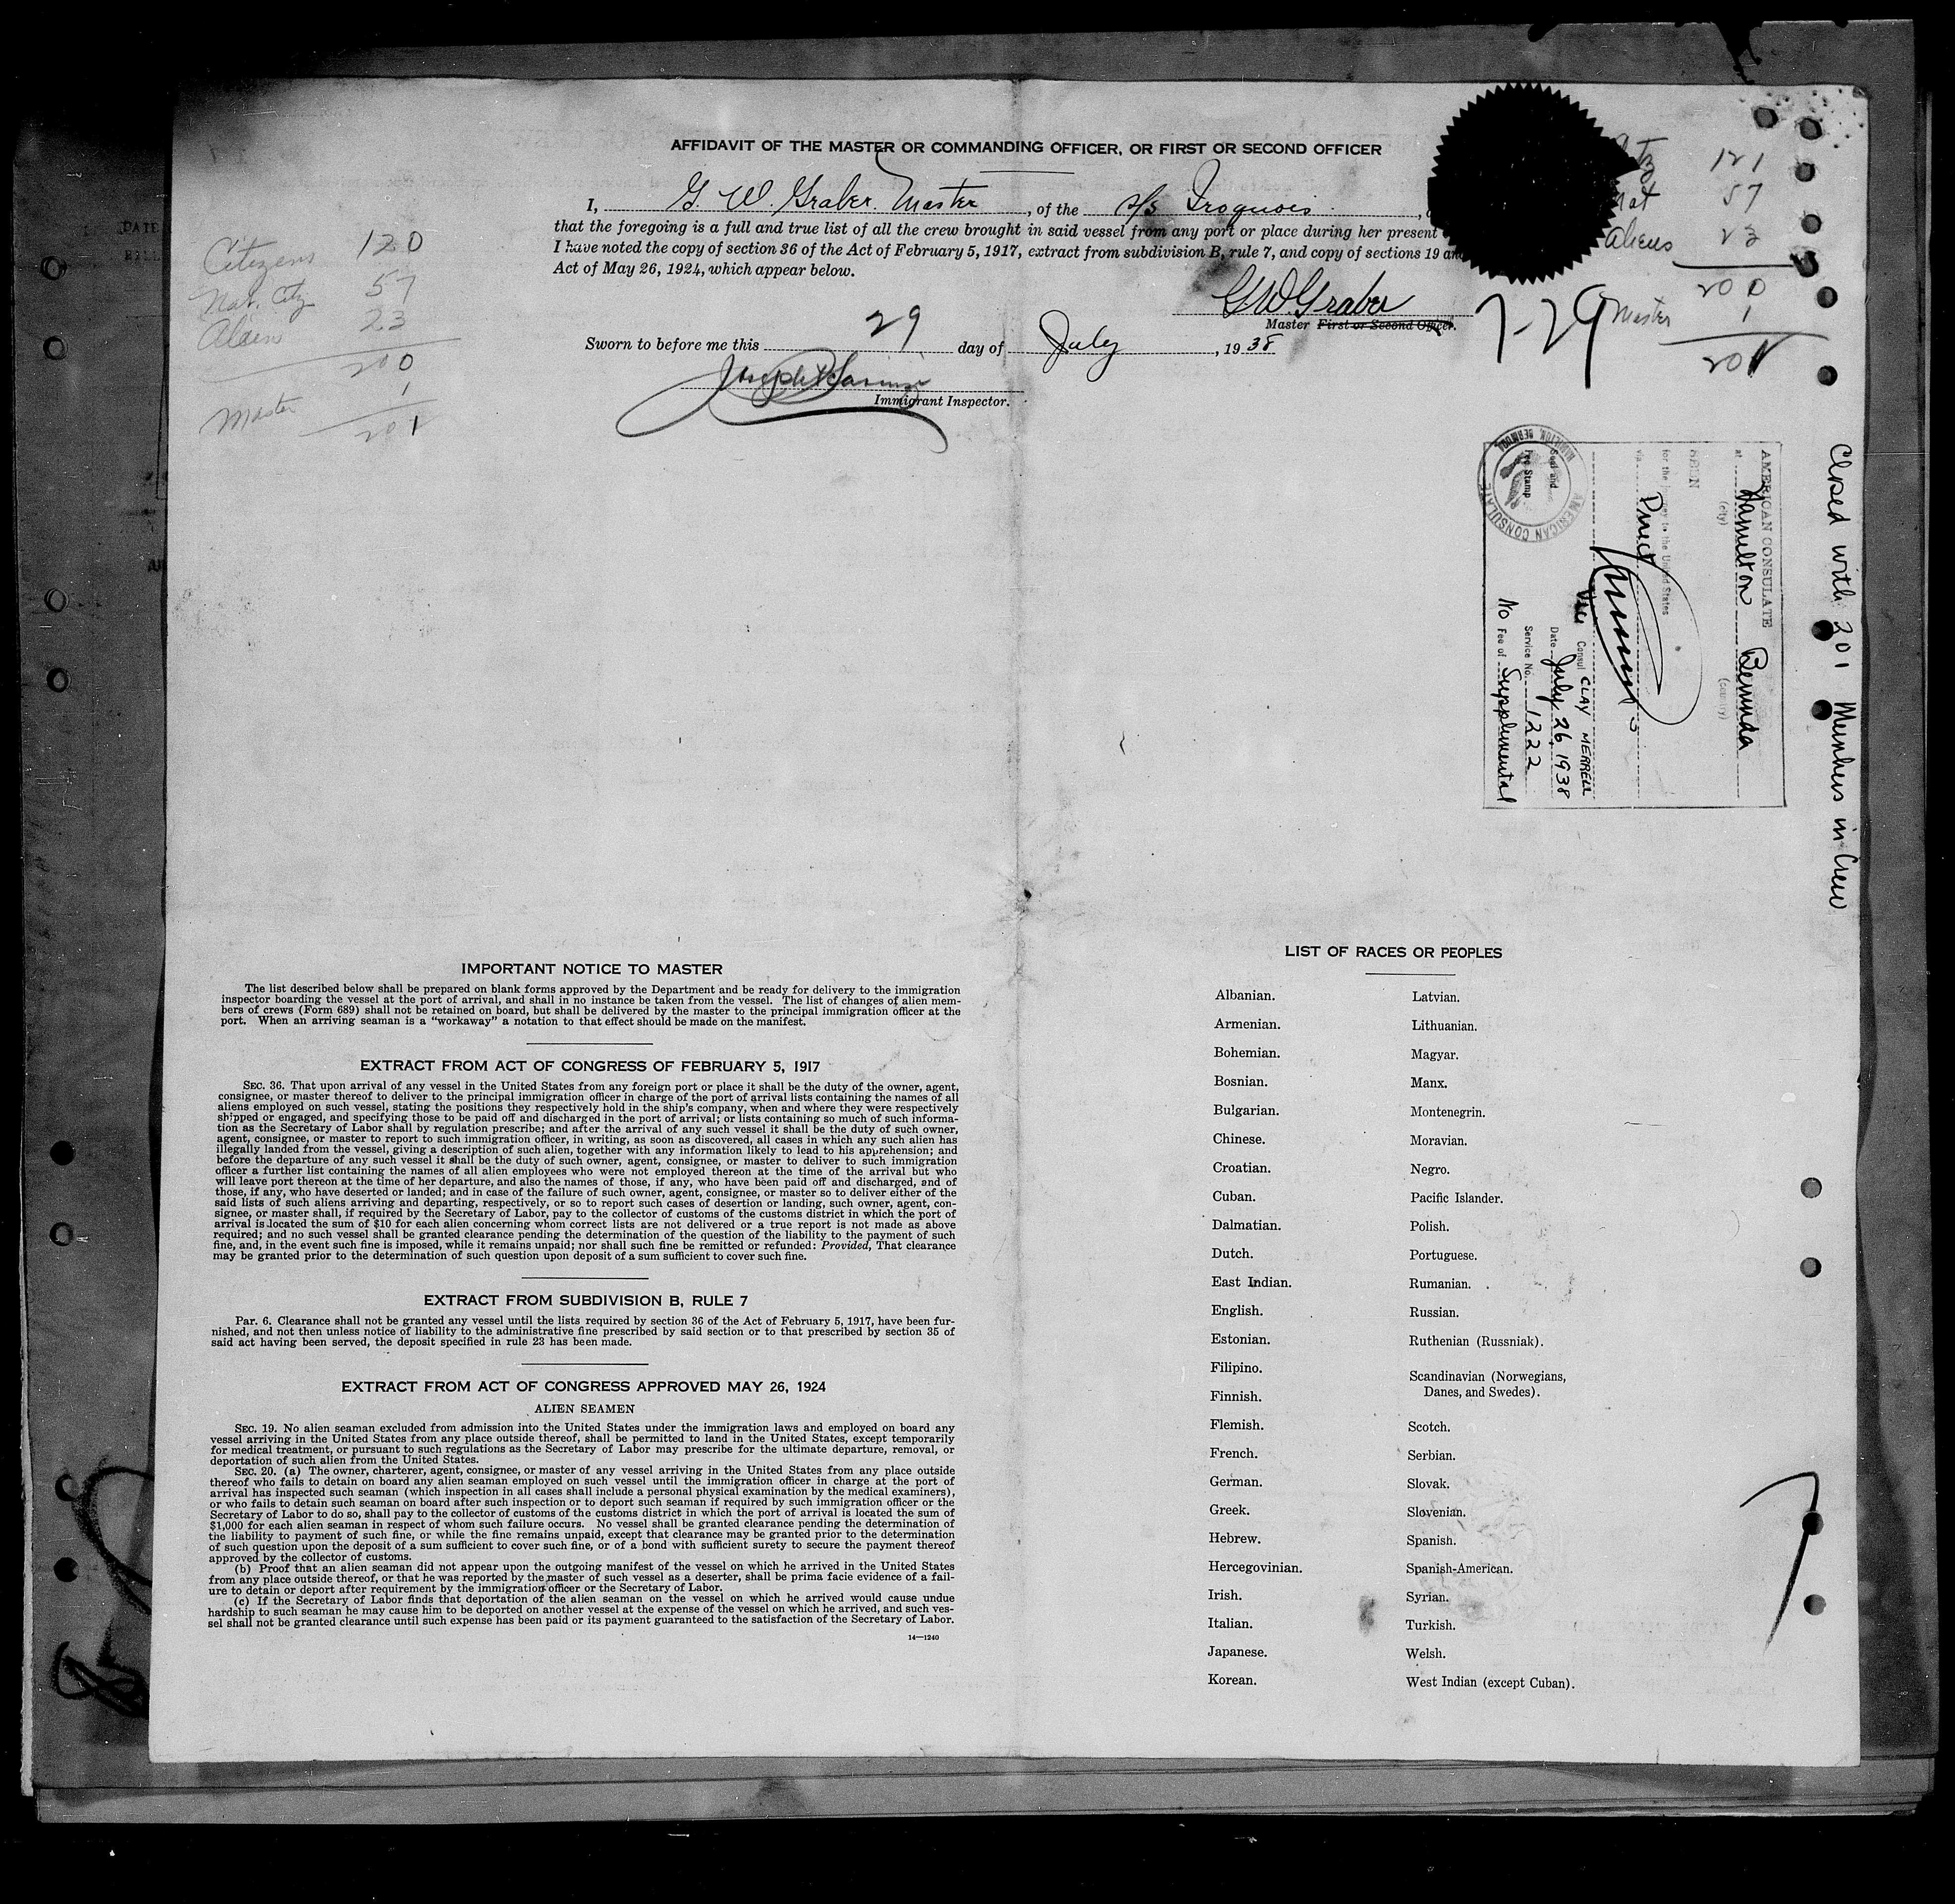 AFFIDAVIT OF THE MASTER OR COMMANDING OFFICER, OR FIRST OR SECOND OFFICER
I, G. W. Graber Master, of the s/s Iroquois,
that the foregoing is a full and true list of all the crew brought in said vessel from any port or place during her present
I have noted the copy of section 36 of the Act of February 5, 1917, extract from subdivision B, rule 7, and copy of sections 19 and
Act of May 26, 1924, which appear below.
G W Graber
Master First or Second Officer.
Sworn to before me this 29 day of July, 1938
Immigrant Inspector.
Citizens 120
Nat. Citz 57
Alien 23
200
Master 1
201
121
Nat 57
Aliens 23
200
Master 1
201
7-29
Closed with 201 Members in Crew
AMERICAN CONSULATE
at Hamilton Bermuda
(city) (country)
SEEN
for the journey to the United States
via
Vice Consul CLAY MERRELL
Date July 26, 1938
Service No. 1222
No Fee of Supplemental
Seal and
Fee Stamp
AMERICAN CONSULATE
HAMILTON, BERMUDA
IMPORTANT NOTICE TO MASTER
The list described below shall be prepared on blank forms approved by the Department and be ready for delivery to the immigration
inspector boarding the vessel at the port of arrival, and shall in no instance be taken from the vessel. The list of changes of alien mem-
bers of crews (Form 689) shall not be retained on board, but shall be delivered by the master to the principal immigration officer at the
port. When an arriving seaman is a “workaway” a notation to that effect should be made on the manifest.
EXTRACT FROM ACT OF CONGRESS OF FEBRUARY 5, 1917
SEC. 36. That upon arrival of any vessel in the United States from any foreign port or place it shall be the duty of the owner, agent,
consignee, or master thereof to deliver to the principal immigration officer in charge of the port of arrival lists containing the names of all
aliens employed on such vessel, stating the positions they respectively hold in the ship's company, when and where they were respectively
shipped or engaged, and specifying those to be paid off and discharged in the port of arrival; or lists containing so much of such informa-
tion as the Secretary of Labor shall by regulation prescribe; and after the arrival of any such vessel it shall be the duty of such owner,
agent, consignee, or master to report to such immigration officer, in writing, as soon as discovered, all cases in which any such alien has
illegally landed from the vessel, giving a description of such alien, together with any information likely to lead to his apprehension; and
before the departure of any such vessel it shall be the duty of such owner, agent, consignee, or master to deliver to such immigration
officer a further list containing the names of all alien employees who were not employed thereon at the time of the arrival but who
will leave port thereon at the time of her departure, and also the names of those, if any, who have been paid off and discharged, and of
those, if any, who have deserted or landed; and in case of the failure of such owner, agent, consignee, or master so to deliver either of the
said lists of such aliens arriving and departing, respectively, or so to report such cases of desertion or landing, such owner, agent, con-
signee, or master shall, if required by the Secretary of Labor, pay to the collector of customs of the customs district in which the port of
arrival is located the sum of $10 for each alien concerning whom correct lists are not delivered or a true report is not made as above
required; and no such vessel shall be granted clearance pending the determination of the question of the liability to the payment of such
fine, and, in the event such fine is imposed, while it remains unpaid; nor shall such fine be remitted or refunded: Provided, That clearance
may be granted prior to the determination of such question upon deposit of a sum sufficient to cover such fine.
EXTRACT FROM SUBDIVISION B, RULE 7
Par. 6. Clearance shall not be granted any vessel until the lists required by section 36 of the Act of February 5, 1917, have been fur-
nished, and not then unless notice of liability to the administrative fine prescribed by said section or to that prescribed by section 35 of
said act having been served, the deposit specified in rule 23 has been made.
EXTRACT FROM ACT OF CONGRESS APPROVED MAY 26, 1924
ALIEN SEAMEN
SEC. 19. No alien seaman excluded from admission into the United States under the immigration laws and employed on board any
vessel arriving in the United States from any place outside thereof, shall be permitted to land in the United States, except temporarily
for medical treatment, or pursuant to such regulations as the Secretary of Labor may prescribe for the ultimate departure, removal, or
deportation of such alien from the United States.
SEC. 20. (a) The owner, charterer, agent, consignee, or master of any vessel arriving in the United States from any place outside
thereof who fails to detain on board any alien seaman employed on such vessel until the immigration officer in charge at the port of
arrival has inspected such seaman (which inspection in all cases shall include a personal physical examination by the medical examiners),
or who fails to detain such seaman on board after such inspection or to deport such seaman if required by such immigration officer or the
Secretary of Labor to do so, shall pay to the collector of customs of the customs district in which the port of arrival is located the sum of
$1,000 for each alien seaman in respect of whom such failure occurs. No vessel shall be granted clearance pending the determination of
the liability to the payment of such fine, or while the fine remains unpaid, except that clearance may be granted prior to the determination
of such question upon the deposit of a sum sufficient to cover such fine, or of a bond with sufficient surety to secure the payment thereof
approved by the collector of customs.
(b) Proof that an alien seaman did not appear upon the outgoing manifest of the vessel on which he arrived in the United States
from any place outside thereof, or that he was reported by the master of such vessel as a deserter, shall be prima facie evidence of a fail-
ure to detain or deport after requirement by the immigration officer or the Secretary of Labor.
(c) If the Secretary of Labor finds that deportation of the alien seaman on the vessel on which he arrived would cause undue
hardship to such seaman he may cause him to be deported on another vessel at the expense of the vessel on which he arrived, and such ves-
sel shall not be granted clearance until such expense has been paid or its payment guaranteed to the satisfaction of the Secretary of Labor.
14—1240
LIST OF RACES OR PEOPLES
Albanian.
Armenian.
Bohemian.
Bosnian.
Bulgarian.
Chinese.
Croatian.
Cuban.
Dalmatian.
Dutch.
East Indian.
English.
Estonian.
Filipino.
Finnish.
Flemish.
French.
German.
Greek.
Hebrew.
Hercegovinian.
Irish.
Italian.
Japanese.
Korean.
Latvian.
Lithuanian.
Magyar.
Manx.
Montenegrin.
Moravian.
Negro.
Pacific Islander.
Polish.
Portuguese.
Rumanian.
Russian.
Ruthenian (Russniak).
Scandinavian (Norwegians,
Danes, and Swedes).
Scotch.
Serbian.
Slovak.
Slovenian.
Spanish.
Spanish-American.
Syrian.
Turkish.
Welsh.
West Indian (except Cuban).